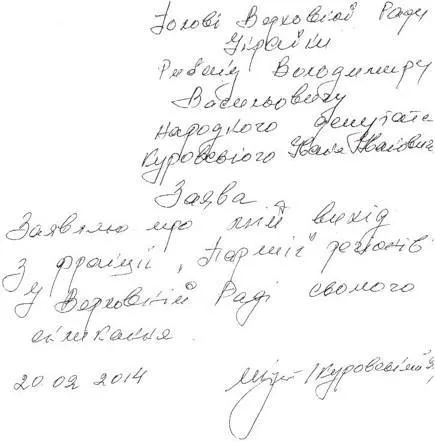 Голові Верховної Ради
України
Рибаку Володимиру
Васильовичу
народного депутата
Куровського Івана Івановича
Заява
Заявляю про мій вихід
з фракції „Партії регіонів"
у Верховній Раді сьомого
скликання
20.02 2014 /Куровський І.І.